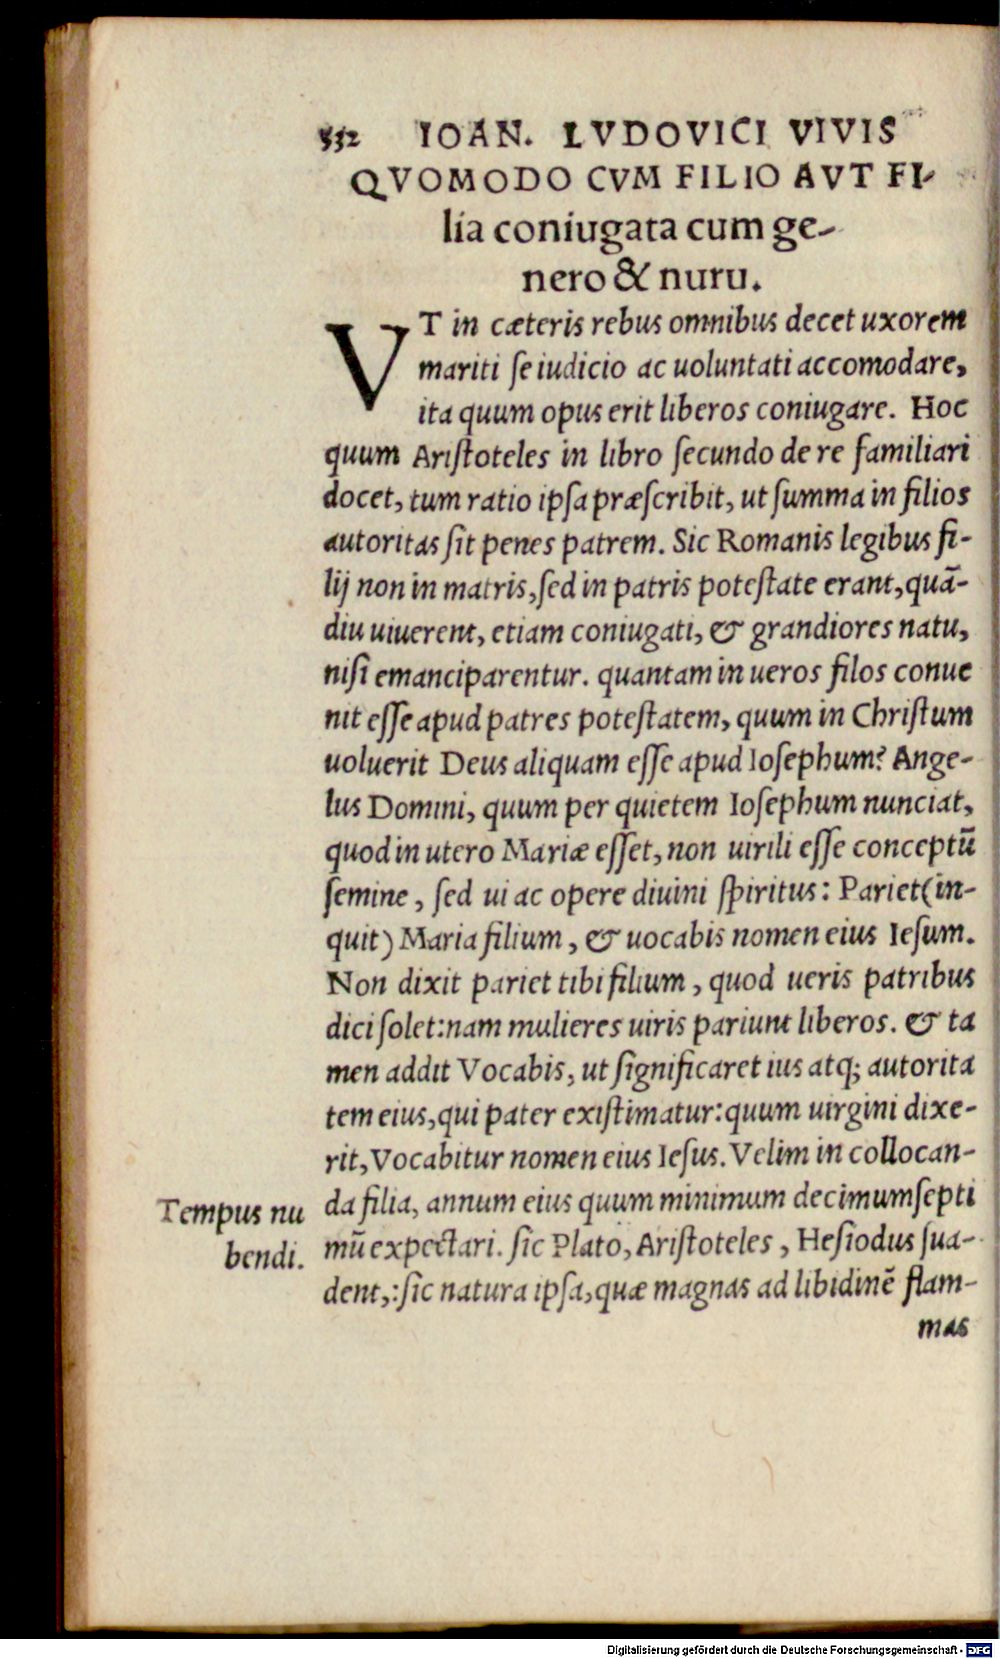 532 IOAN. LVDOVICI VIVIS
QVOMODO CVM FILIO AVT FI-
lia coniugata cum ge-
nero & nuru.
VT in cæteris rebus omnibus decet uxorem
mariti se iudicio ac uoluntati accomodare,
ita quum opus erit liberos coniugare. Hoc
quum Aristoteles in libro secundo de re familiari
docet, tum ratio ipsa præscribit, ut summa in filios
autoritas sit penes patrem. Sic Romanis legibus fi-
lij non in matris, sed in patris potestate erant, quā-
diu uiuerent, etiam coniugati, & grandiores natu,
nisi emanciparentur. quantam in ueros filos conue
nit esse apud patres potestatem, quum in Christum
uoluerit Deus aliquam esse apud Iosephum? Ange-
lus Domini, quum per quietem Iosephum nunciat,
quod in utero Mariæ esset, non uirili esse conceptū
semine, sed ui ac opere diuini spiritus: Pariet (in-
quit) Maria filium, & uocabis nomen eius Iesum.
Non dixit pariet tibi filium, quod ueris patribus
dici solet: nam mulieres uiris pariunt liberos. & ta
men addit Vocabis, ut significaret ius atq; autorita
tem eius, qui pater existimatur: quum uirgini dixe-
rit, Vocabitur nomen eius Iesus. Velim in collocan-
da filia, annum eius quum minimum decimumsepti
mū expectari. sic Plato, Aristoteles, Hesiodus sua-
dent,: sic natura ipsa, quæ magnas ad libidinē flam-
mas
Tempus nu
bendi.
Digitalisierung gefördert durch die Deutsche Forschungsgemeinschaft - DFG